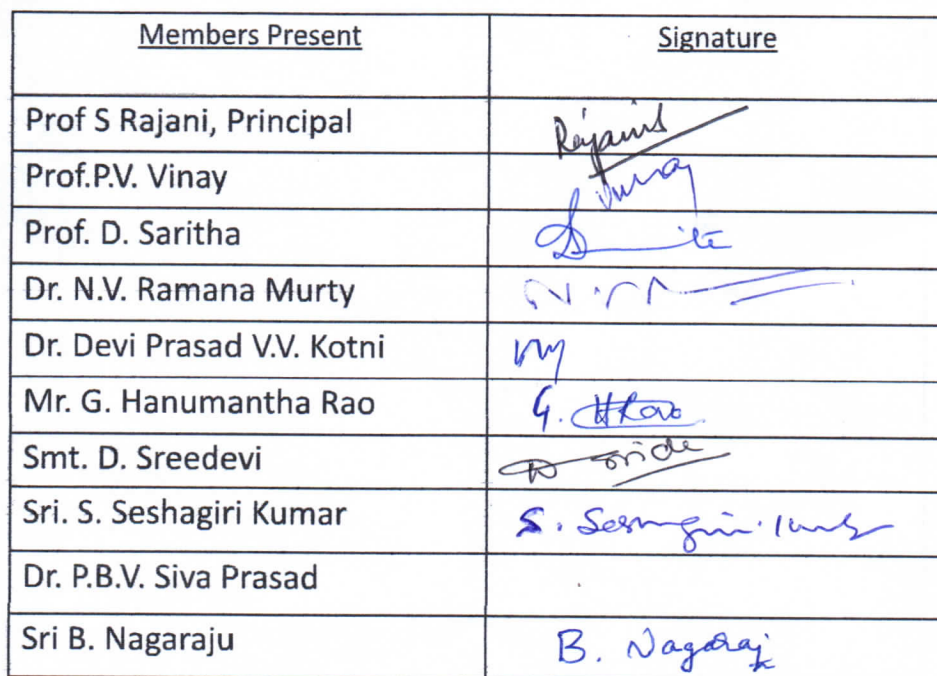 Members Present Signature
Prof S Rajani, Principal Rajani
Prof.P.V. Vinay Vinay
Prof. D. Saritha
Dr. N.V. Ramana Murty
Dr. Devi Prasad V.V. Kotni
Mr. G. Hanumantha Rao G. HRao
Smt. D. Sreedevi
Sri. S. Seshagiri Kumar S.
Dr. P.B.V. Siva Prasad
Sri B. Nagaraju B. Nagaraj